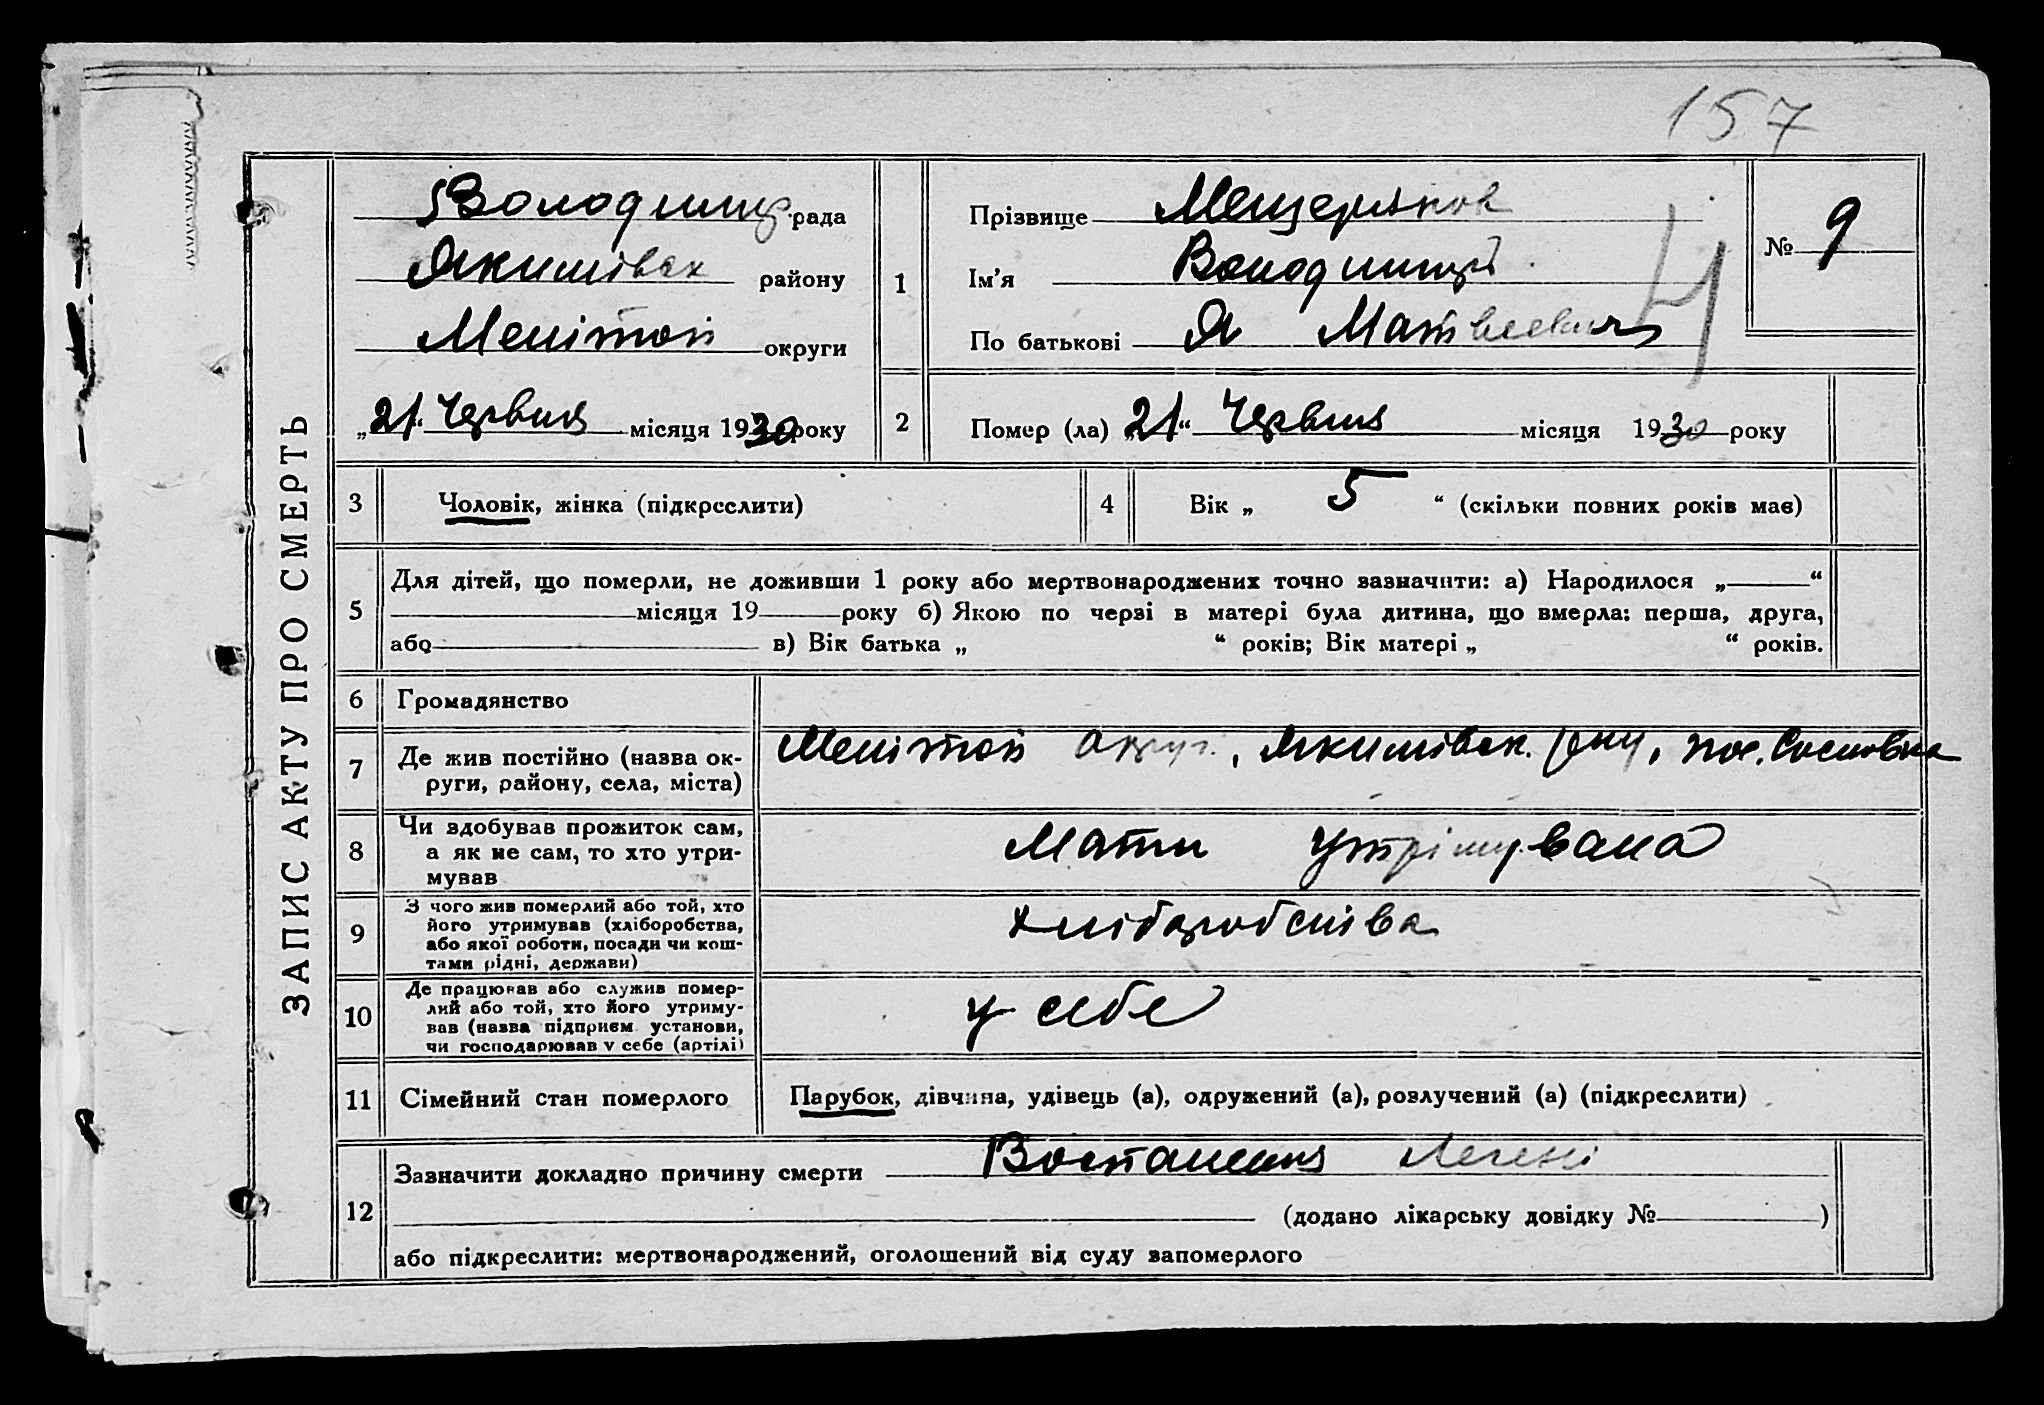 157
ЗАПИС АКТУ ПРО СМЕРТЬ
Володимир. рада
Якимівськ району
Мелітоп округи
„21“ Червня місяця 1930 року
1
Прізвище Мещеряков
Ім’я Володимир
По батькові Матвеевич
4
№ 9
2
Помер (ла) „21“ Червня місяця 1930 року
3 Чоловік, жінка (підкреслити)
4 Вік „ 5 “ (скільки повних років має)
5 Для дітей, що померли, не доживши 1 року або мертвонароджених точно зазначити: а) Народилося „ “
місяця 19 року б) Якою по черзі в матері була дитина, що вмерла: перша, друга,
або в) Вік батька „ “ років; Вік матері „ “ років.
6 Громадянство
7 Де жив постійно (назва ок-
руги, району, села, міста)
Мелітоп округ., Якимівськ. рну, пос. Сосновка
8 Чи здобував прожиток сам,
а як не сам, то хто утри-
мував
Мати утрімувала
9 З чого жив померлий або той, хто
його утримував (хліборобства,
або якої роботи, посади чи кош-
тами рідні, держави)
Хліборобства
10 Де працював або служив помер-
лий або той, хто його утриму-
вав (назва підприєм. установи,
чи господарював у себе (артілі)
у себе
11 Сімейний стан померлого
Парубок, дівчина, удівець (а), одружений (а), розлучений (а) (підкреслити)
12 Зазначити докладно причину смерти Воспаления Легені
(додано лікарську довідку № )
або підкреслити: мертвонароджений, оголошений від суду запомерлого